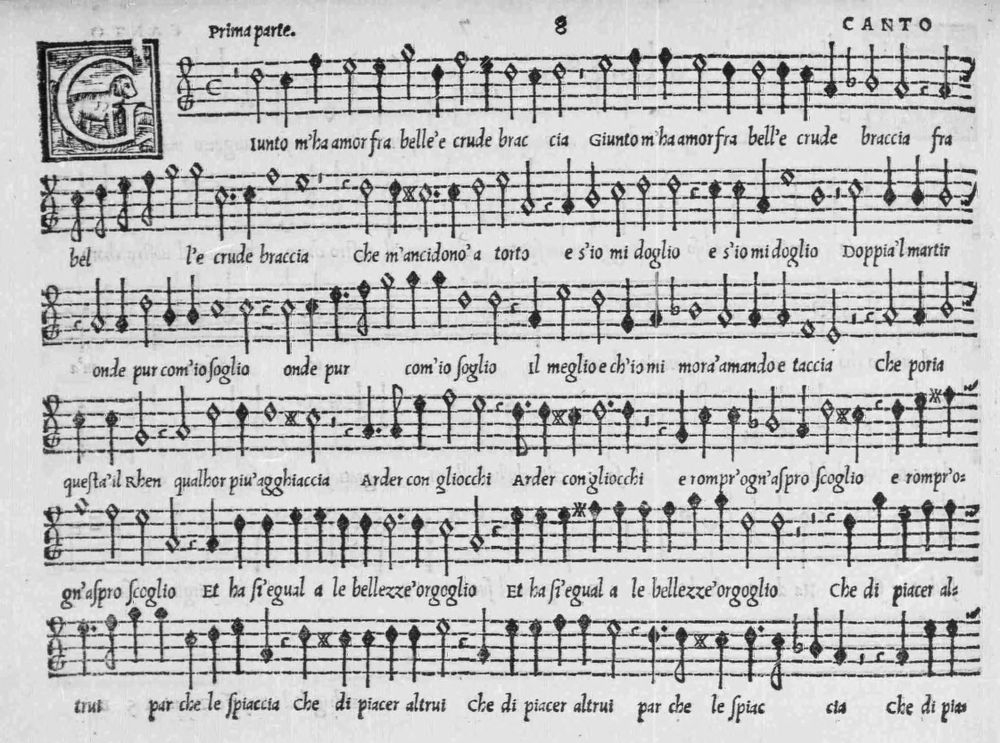 Prima parte. 8 CANTO
GIunto m'ha amor fra belle'e crude brac cia Giunto m'ha amor fra bell'e crude braccia fra
bel l'e crude braccia Che m'ancidono'a torto e s'io mi doglio e s'io mi doglio Doppia'l martir
onde pur com'io soglio onde pur com'io soglio Il meglio e ch'io mi mora'amando e taccia Che poria
questa'il Rhen qualhor piu'agghiaccia Arder con gliocchi Arder con gliocchi e rompr'ogn'aspro scoglio e rompr'o=
gn'aspro scoglio Et ha si'egual a le bellezze'orgoglio Et ha si'egual a le bellezze'orgoglio Che di piacer al=
trui par che le spiaccia Che di piacer altrui Che di piacer altrui par che le spiac cia Che di pia=